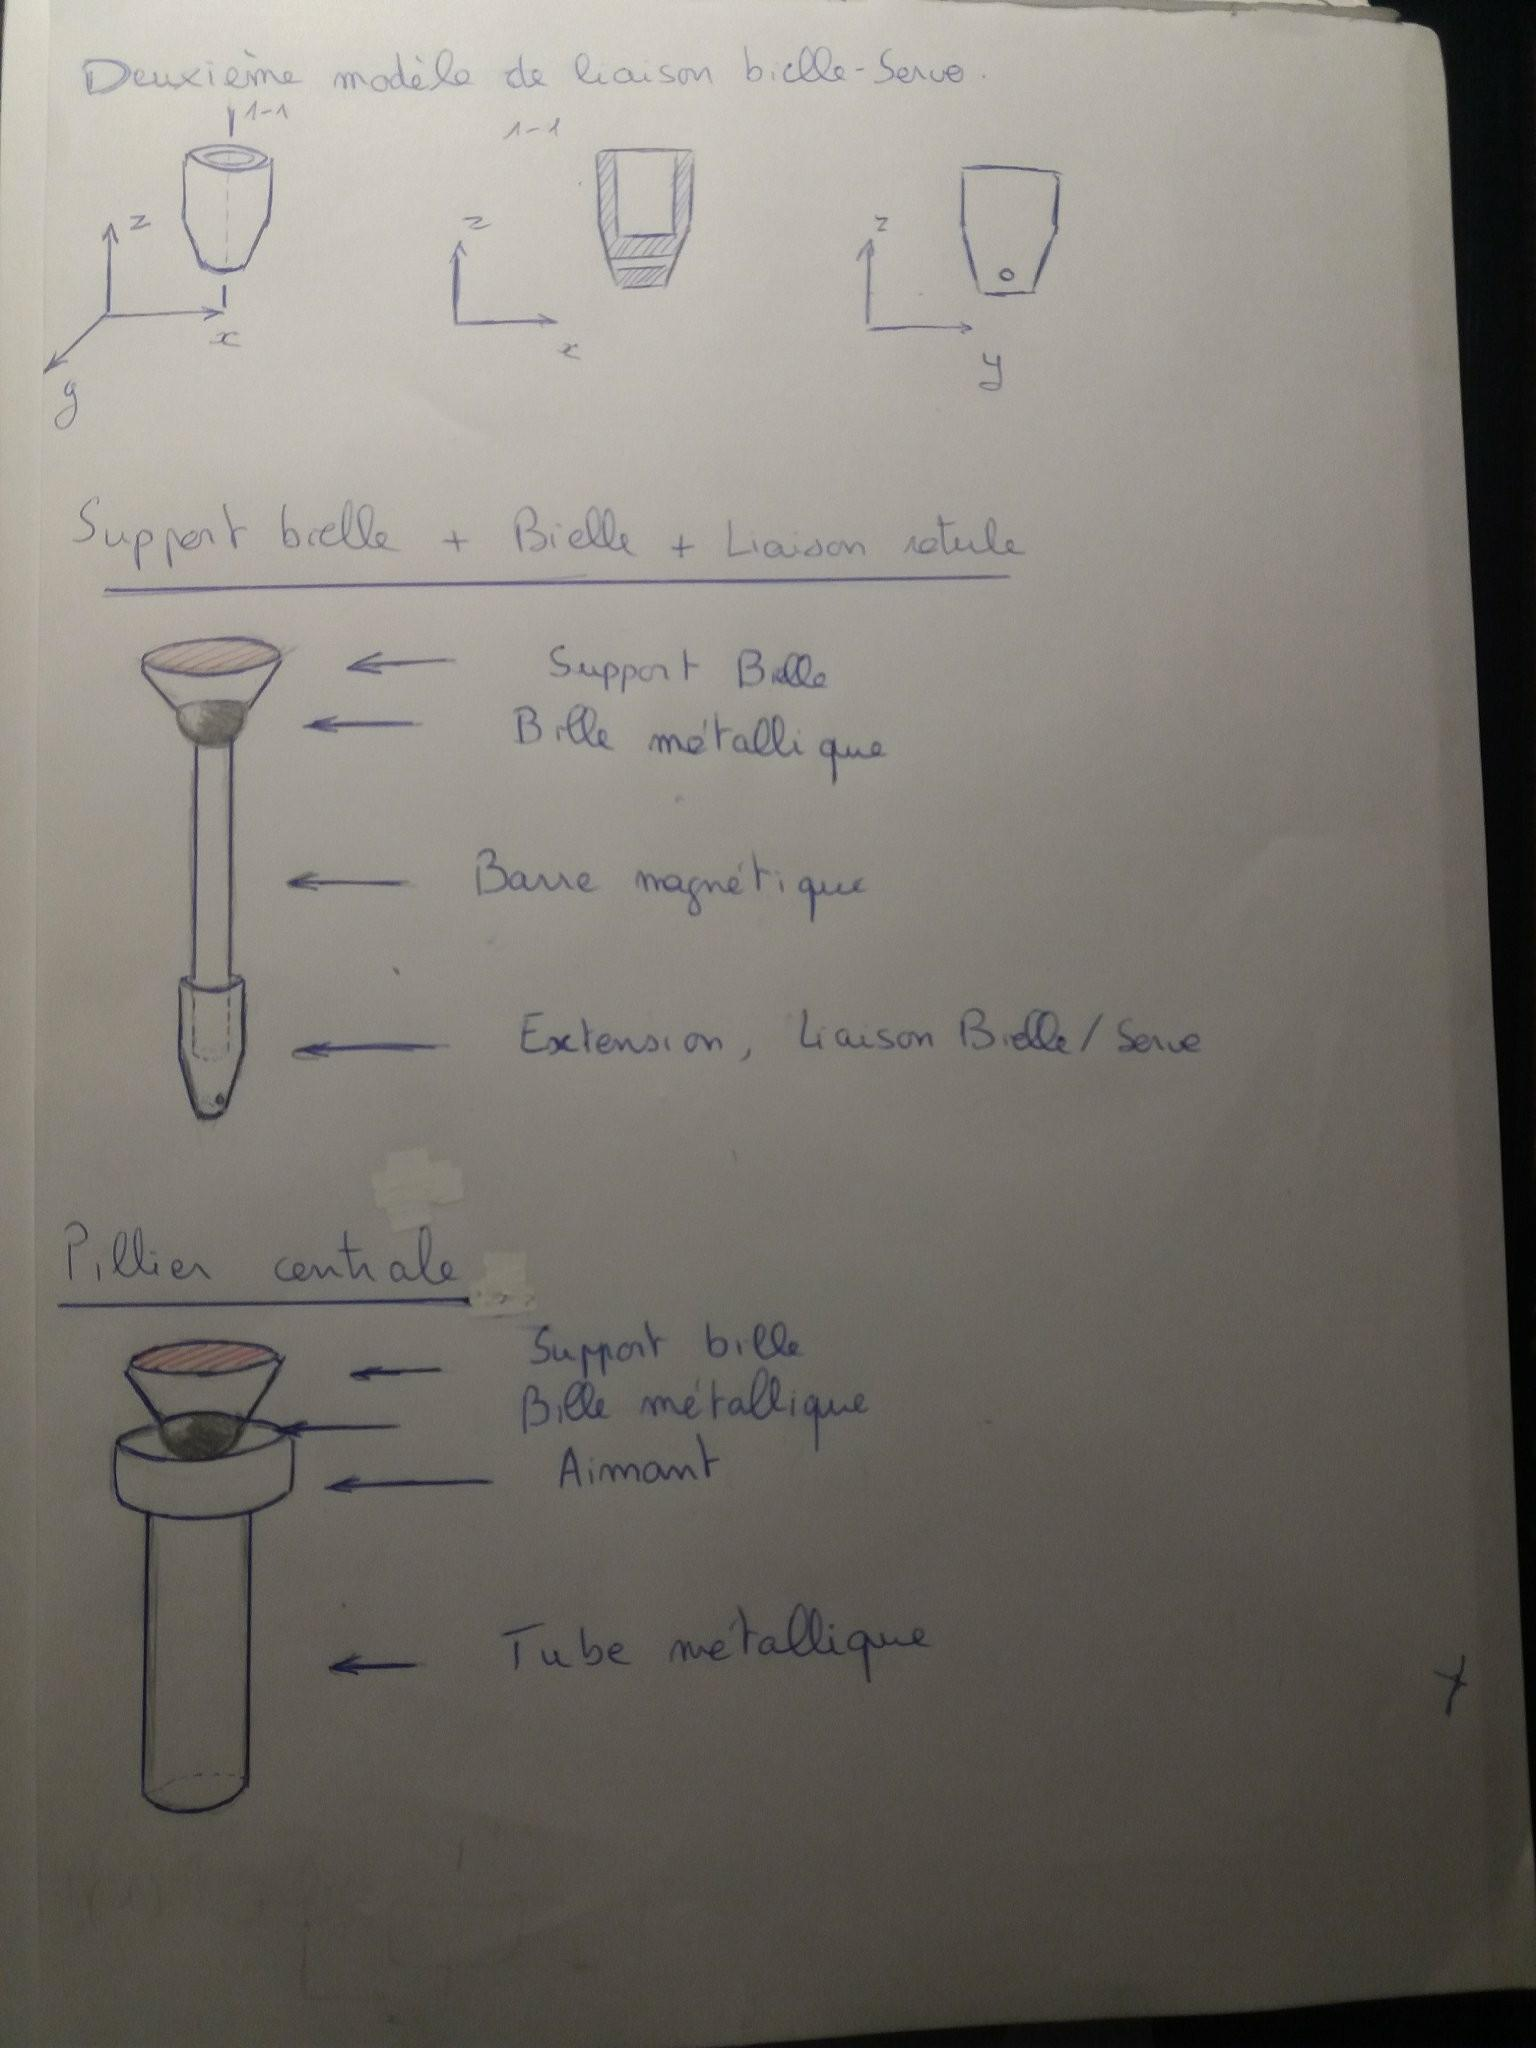 Deuxième modèle de liaison bielle-Servo.
1-1
1-1
z
z
z
x
x
y
y
Support bielle + Bielle + Liaison rotule
Support Bielle
Bille métallique
Barre magnétique
Extension, Liaison Bielle/Servo
Pillier centrale
Support bille
Bille métallique
Aimant
Tube métallique